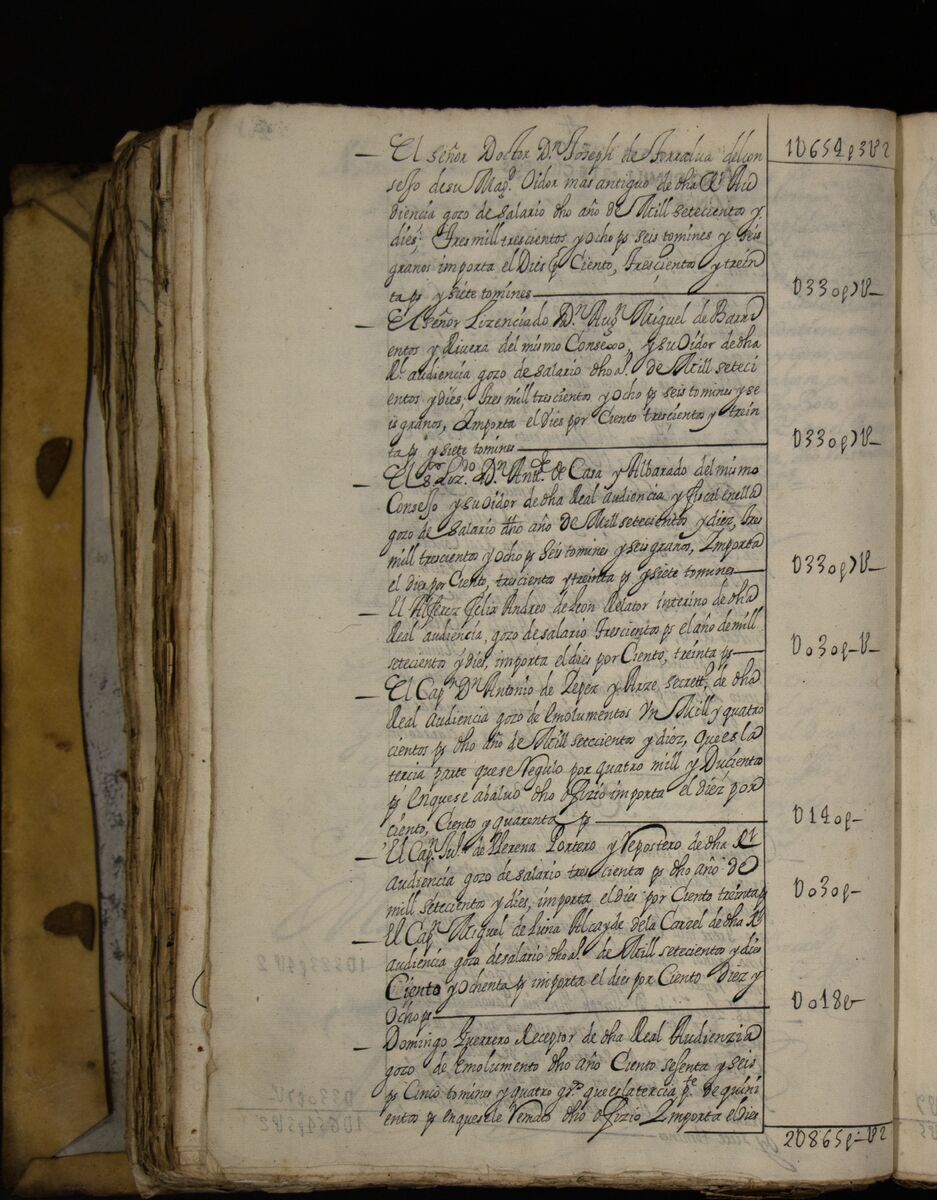 1U654p3U2
El señor Doctor D.n Joseph de Torralva del con
sejo de su Mag.d Oidor mas antiguo de dha R.l Au
diencia gozo de salario dho año de Mill setecientos y
dies, Tres mill trescientos y ocho ps seis tomines y seis
granos importa el Dies p Ciento, Trescientos y trein
ta ps y siete tomines
U330p7U_
El señor Lizenciado D.n Miguel de Barri
entos y Rivera del mismo Consexo, y su Oidor de dha
R.l audiencia gozo de salario dho a.o de Mill seteci
entos y dies, tres mill trescientos y ocho ps seis tomines y se
is granos, Importa el dies por Ciento trescientos y trein
ta ps y siete tomines
U330p7U_
El s.or Liz.do D.n Ant.o de Casa y Albarado del mismo
Consejo y su Oidor de dha Real audiencia y fiscal en ella
gozo de salario dho año de Mill setecientos y diez, tres
mill trescientos y ocho ps seis tomines y seis granos, Importa
el diez por Ciento, trescientos y treinta ps y siete tomines
U330p7U_
El Alferez felix Andreo de Leon Relator interino de dha
Real audiencia, gozo de salario trescientos ps el año de mill
setecientos y dies, importa el dies por Ciento, treinta ps
Uo30p_U_
El Cap.n D.n Antonio de Yepez y Arze secrett.o de dha
Real Audiencia gozo de Emolumentos Vn Mill y quatro
cientos ps dho año de Mill setecientos y diez, que es la
tercia parte que se Regulo por quatro mill y Ducientos
ps En que se abaluo dho ofizio importa el diez por
ciento, Ciento y quarenta ps
U140p_
El Cap.n de Llerena Portero y Repostero de dha R.l
Audiencia gozo de salario tres cientos ps dho año de
mill setecientos y dies, importa el dies por Ciento treinta ps
Uo30p_
El Cap.n Miguel de Luna Alcayde de la Carzel de dha R.l
audiencia gozo de salario dho a.o de Mill setecientos y dies
Ciento y ochenta ps importa el dies por Ciento Diez y
ocho ps
Uo18p
Domingo Guerrero Receptor de dha Real Audienzia
gozo de Emolumento dho año Ciento sesenta y seis
ps Cinco tomines y quatro gr.s que es la tercia p.te de quini
entos ps en que se le Remato dho ofizio Importa el dies
2U865p_U2